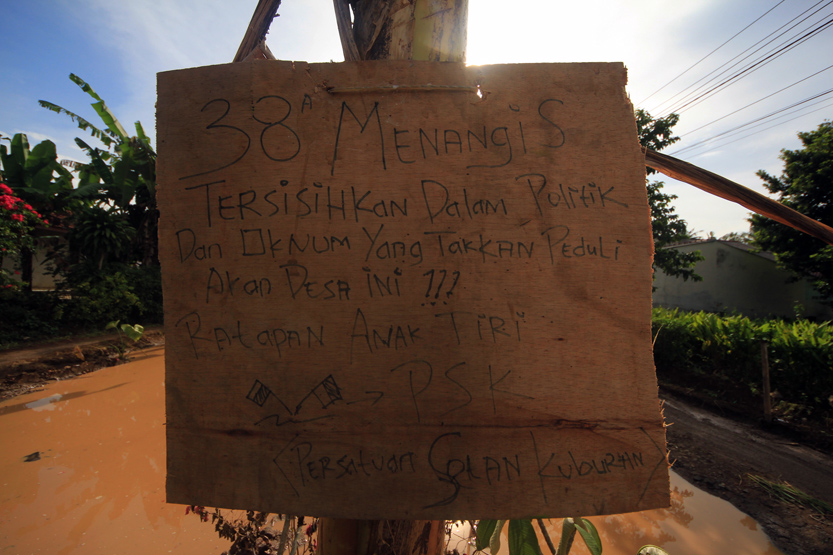 38A MENangiS
TERSiSiHKan Dalam PoliTiK
Dan OKNUM Yang TAKKAN PEDULi
AKan DESA iNi !!!
RaTapan ANAK TiRi
→ PSK
<PERSaTuan SETAN KuBuRAN>